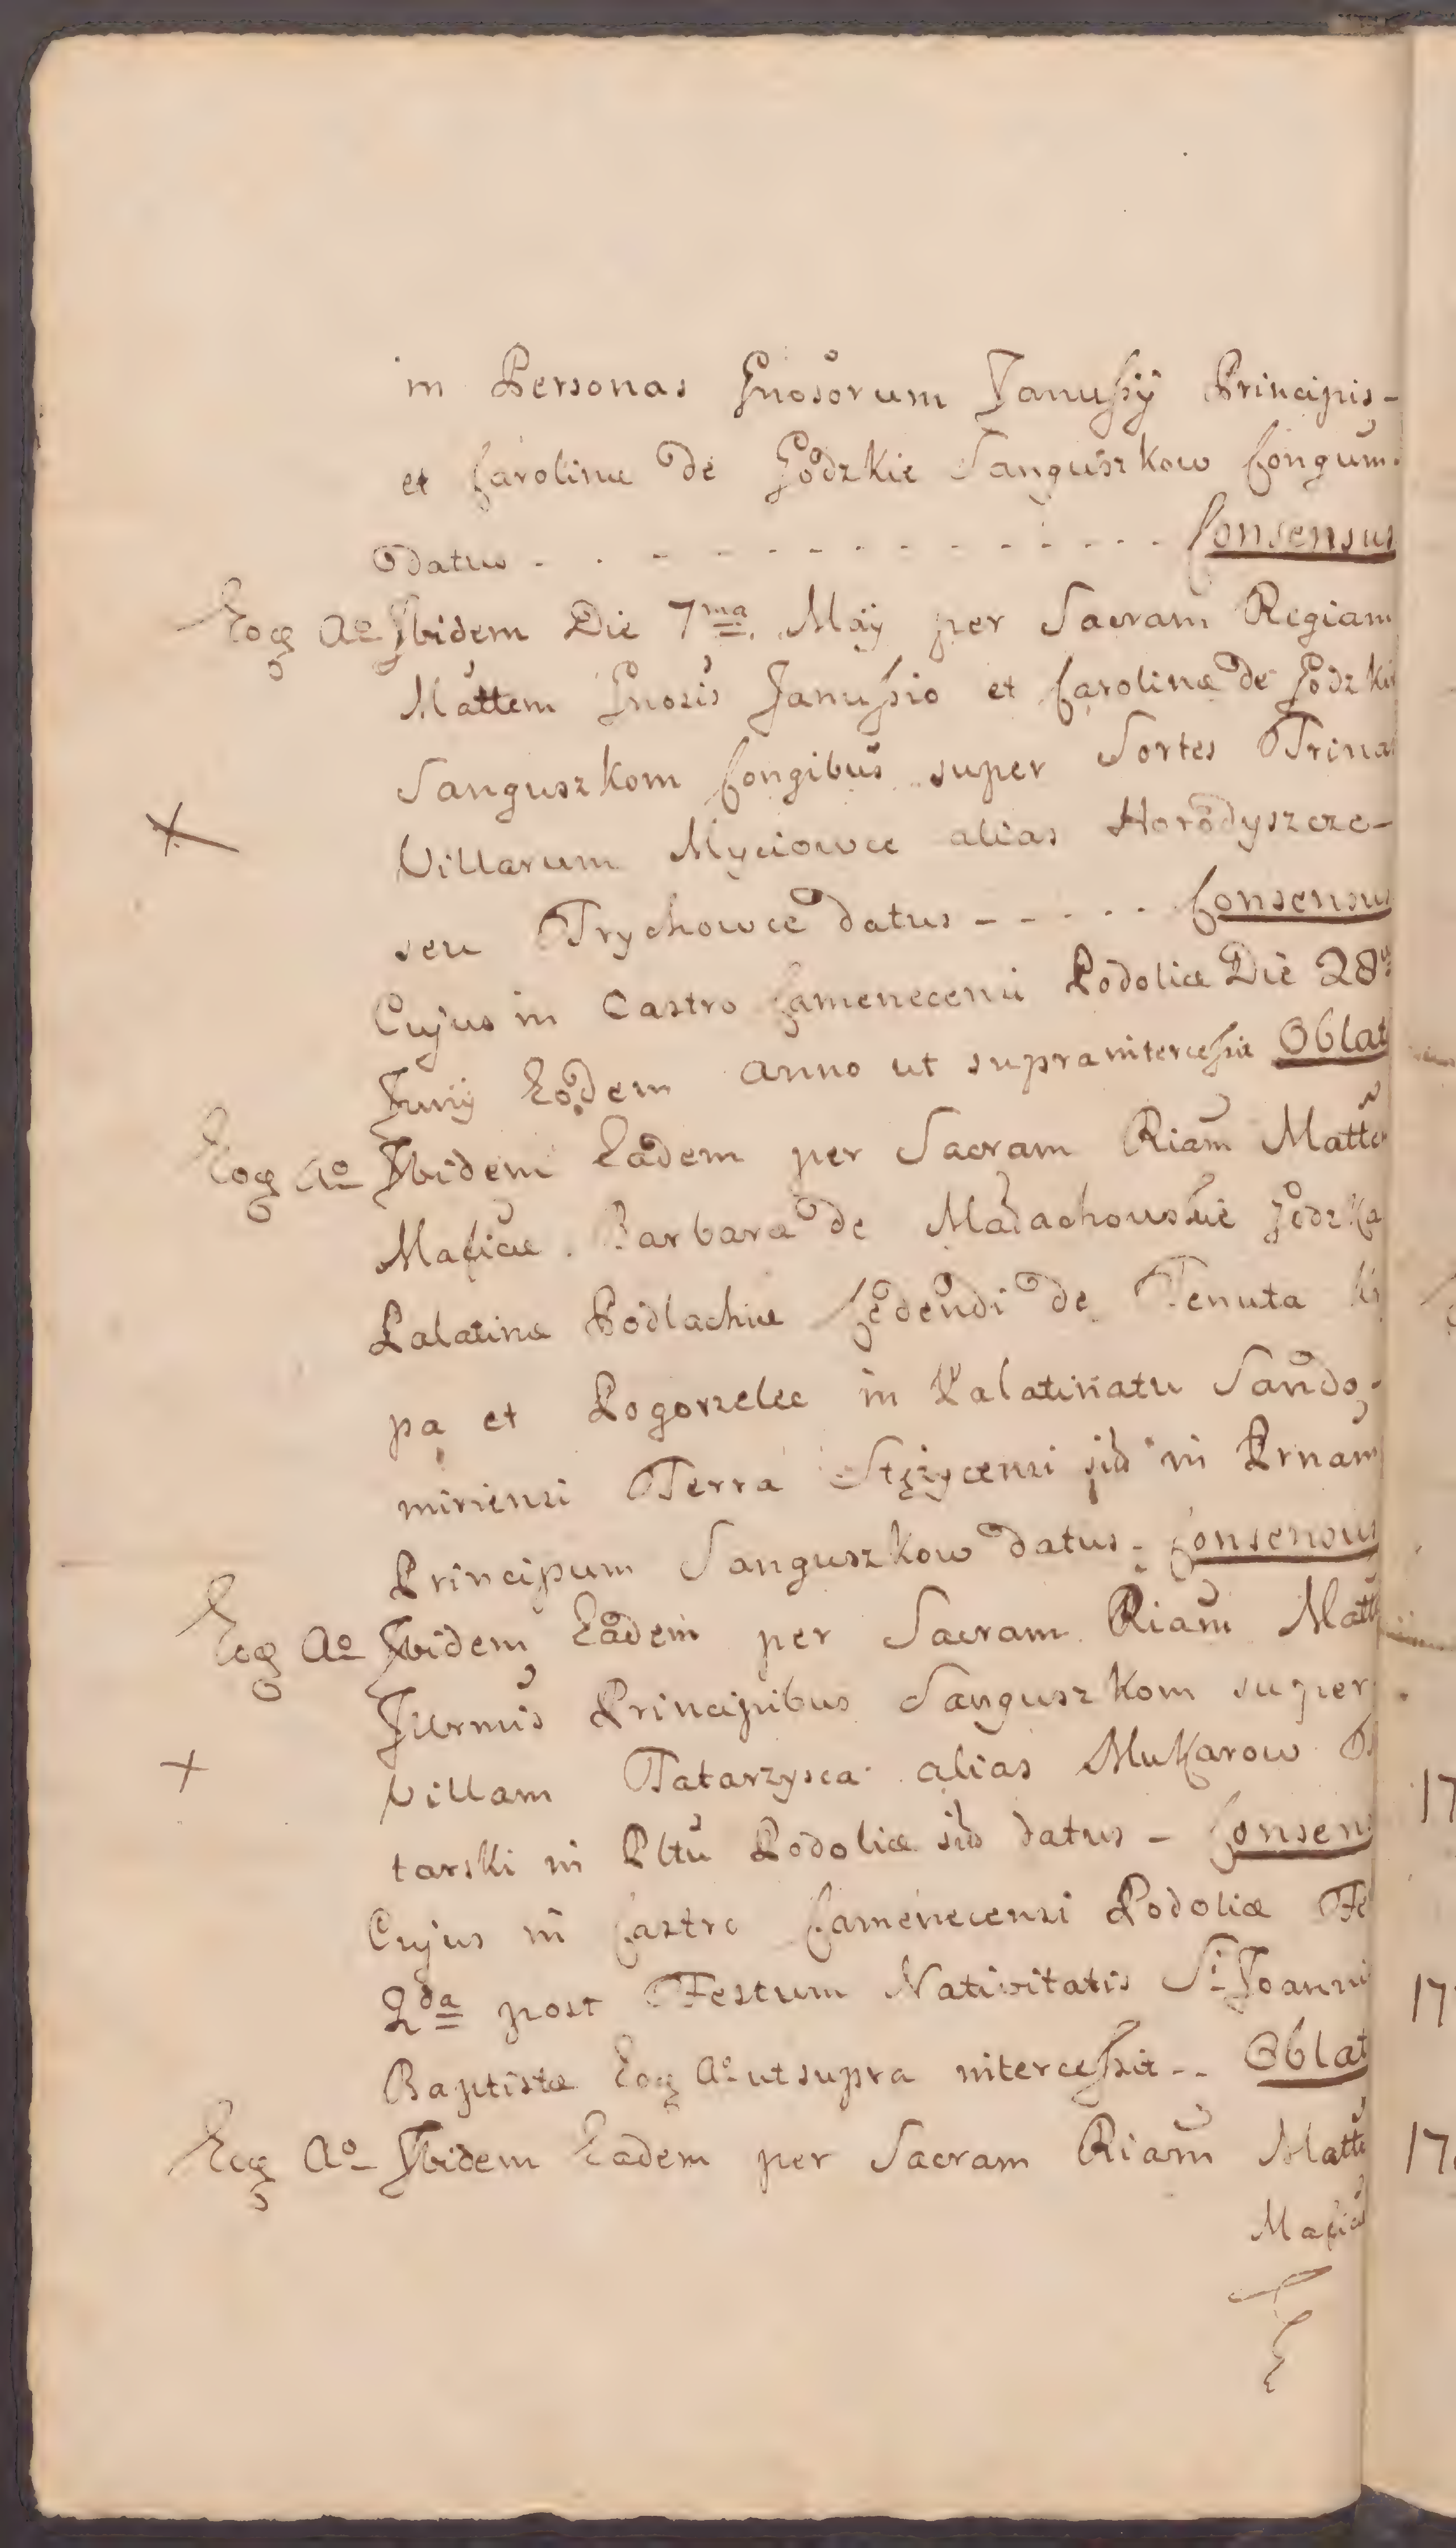 in Personas Gnosorum Janussÿ Principis-
et Carolinæ de Godzkie Sanguszkow Congum.
datus - - - - - - - - - - - - Consensus
Eoq Ao Ibidem Die 7ma May per Sacram Regiam
Mattem Gnosis Janussio et Carolinæ de Godzkie
Sanguszkom Congibus super Sortes Trina
Villarum Myciowce alias Horodyszcze-
seu Trychowce datus - - - - - Consensus
Cujus in Castro Camenecensi Podoliæ Die 28
Junÿ Eodem anno ut supra intercessit Oblat
Eoq Ao Ibidem Eadem per Sacram Riam Matte
Macæ. Barbaræ de Małachowskie Godzka
Palatinæ Podlachiæ Cedendi de Tenuta
pa et Pogorzelec in Palatinatu Sando-
miriensi Terra Stężycensi sid in Prnam
Principum Sanguszkow datus - Consensus
Eoq Ao Ibidem Eadem per Sacram Riam Matt
Illrmis Principibus Sanguszkom super
Villam Tatarzysca alias Mukarow
tarski in Pltu Podoliæ sid datus - Consens
Cujus in Castro Camenecensi Podoliæ Fe
2da post Festum Nativitatis Si Joanni
Baptistæ Eoq Ao ut supra intercessit -- Oblat
Eoq Ao Ibidem Eadem per Sacram Riam Matte